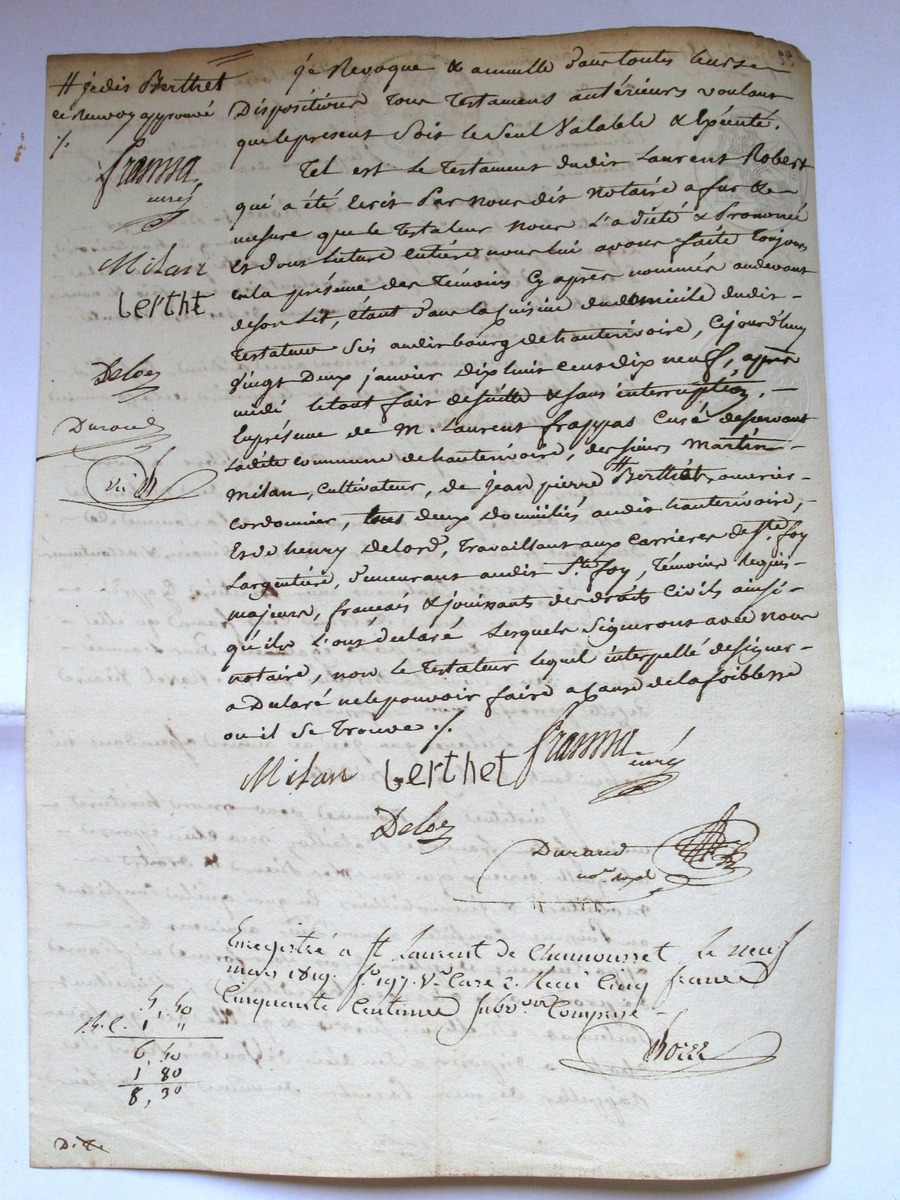 # je dis Berthet
ce renvoy approuvé
./.
frappa
curé
Milan
berthet
Delor
Durand
je Revoque & annulle dans toutes leurs
Dispositions Tous Testamens antérieurs voulant
que le present Soit le Seul Valable & Exécuté.
Tel est Le Testament dudit Laurent Robert
qui a été Ecrit Par nous dit Notaire a fur &
mesure que le Testateur Nous L'a dicté & Prononcé
Et dont lecture entière nous lui avons faite Toujours
en la présence des Témoins Cy après nommés audevant
de son Lit, étant dans la Cuisine du domicile dudit
Testateur Sis audit bourg de hauterivoire, Cejourd'huy
vingt Deux janvier dix huit cent dix neuf, après
midi le tout fait de suitte & sans interruption,
En présence de M. Laurent frappas Curé desservant
Ladite commune de hauterivoire, des sieurs Martin
Milan, Cultivateur, de jean pierre # Berthet, ouvrier
cordonnier, tous deux domiciliés audit hauterivoire,
Et de henry Delord, Travaillant aux Carrieres de Ste. foy
Largentière, demeurant audit Ste. foy, Témoins Requis
majeurs, français & jouissants des droits Civils ainsi
qu'ils L'ont déclaré Lesquels Signeront avec nous
notaire, non le Testateur lequel interpellé de signer
a Déclaré ne le pouvoir faire a Cause de la foiblesse
ou il Se Trouve ./.
Milan berthet frappa
curé
Delor
Durand
nore. royal
Enregistré a St. Laurent de Chamousset Le neuf
mars 1819. fo. 197. Vo. Case 2. Reçu Cinq francs
Cinquante Centimes Subvon. Comprise
5, 40
1 "
6 40
1 80
8, 30